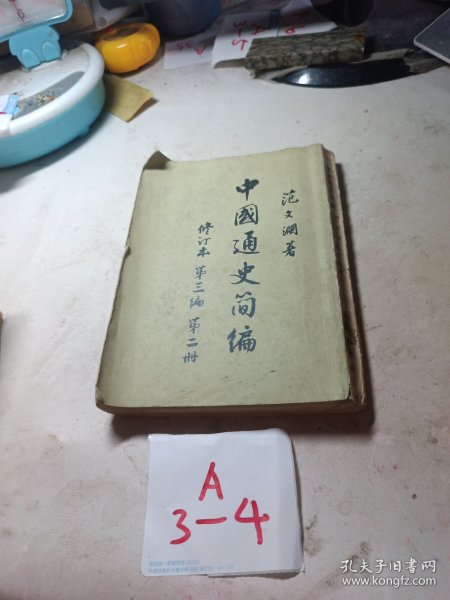 范文瀾著
中國通史简编
修订本 第三编 第二册
A
3-4
孔夫子旧书网
www.kongfz.com